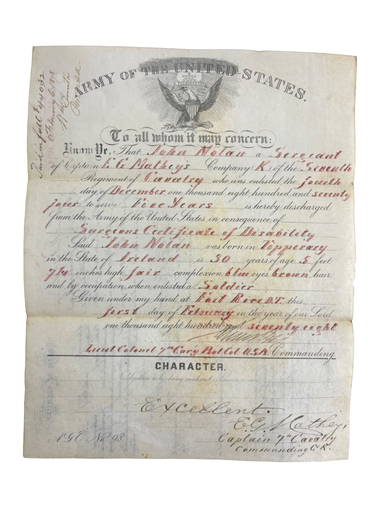 ARMY OF THE UNITED STATES.
To all whom it may concern:
Know Ye, That John Nolan a Sergeant
of Captain E. G. Matheys Company K, of the Seventh
Regiment of Cavalry who was enlisted the fourth
day of December one thousand eight hundred and seventy
four to serve Five Years is hereby discharged
from the Army of the United States in consequence of
Surgeons Certificate of Disability
Said John Nolan was born in Tipperary
in the State of Ireland is 30 years of age 5 feet
7¼ inches high fair complexion blue eyes brown hair
and by occupation, when enlisted a Soldier
Given under my hand at Fort Rice D.T. this
first day of February in the year of our Lord
one thousand eight hundred and seventy eight
Lieut Colonel 7th Cavy Bvt Col U.S.A. Commanding
CHARACTER.
Excellent.
E G Mathey,
Captain 7th Cavalry
Commanding Co K.